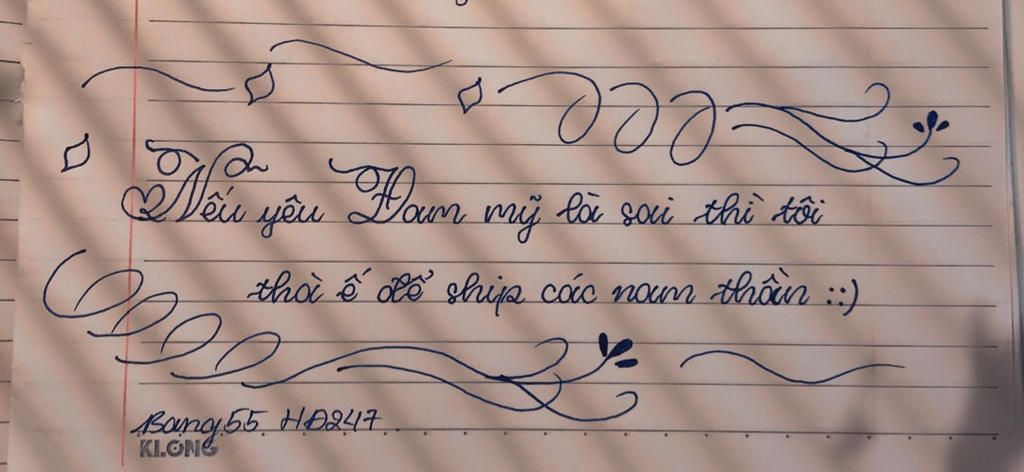 Nếu yêu Đam mỹ là sai thì tôi
thà ế để ship các nam thần ::)
Bang55 HĐ247
KLONG